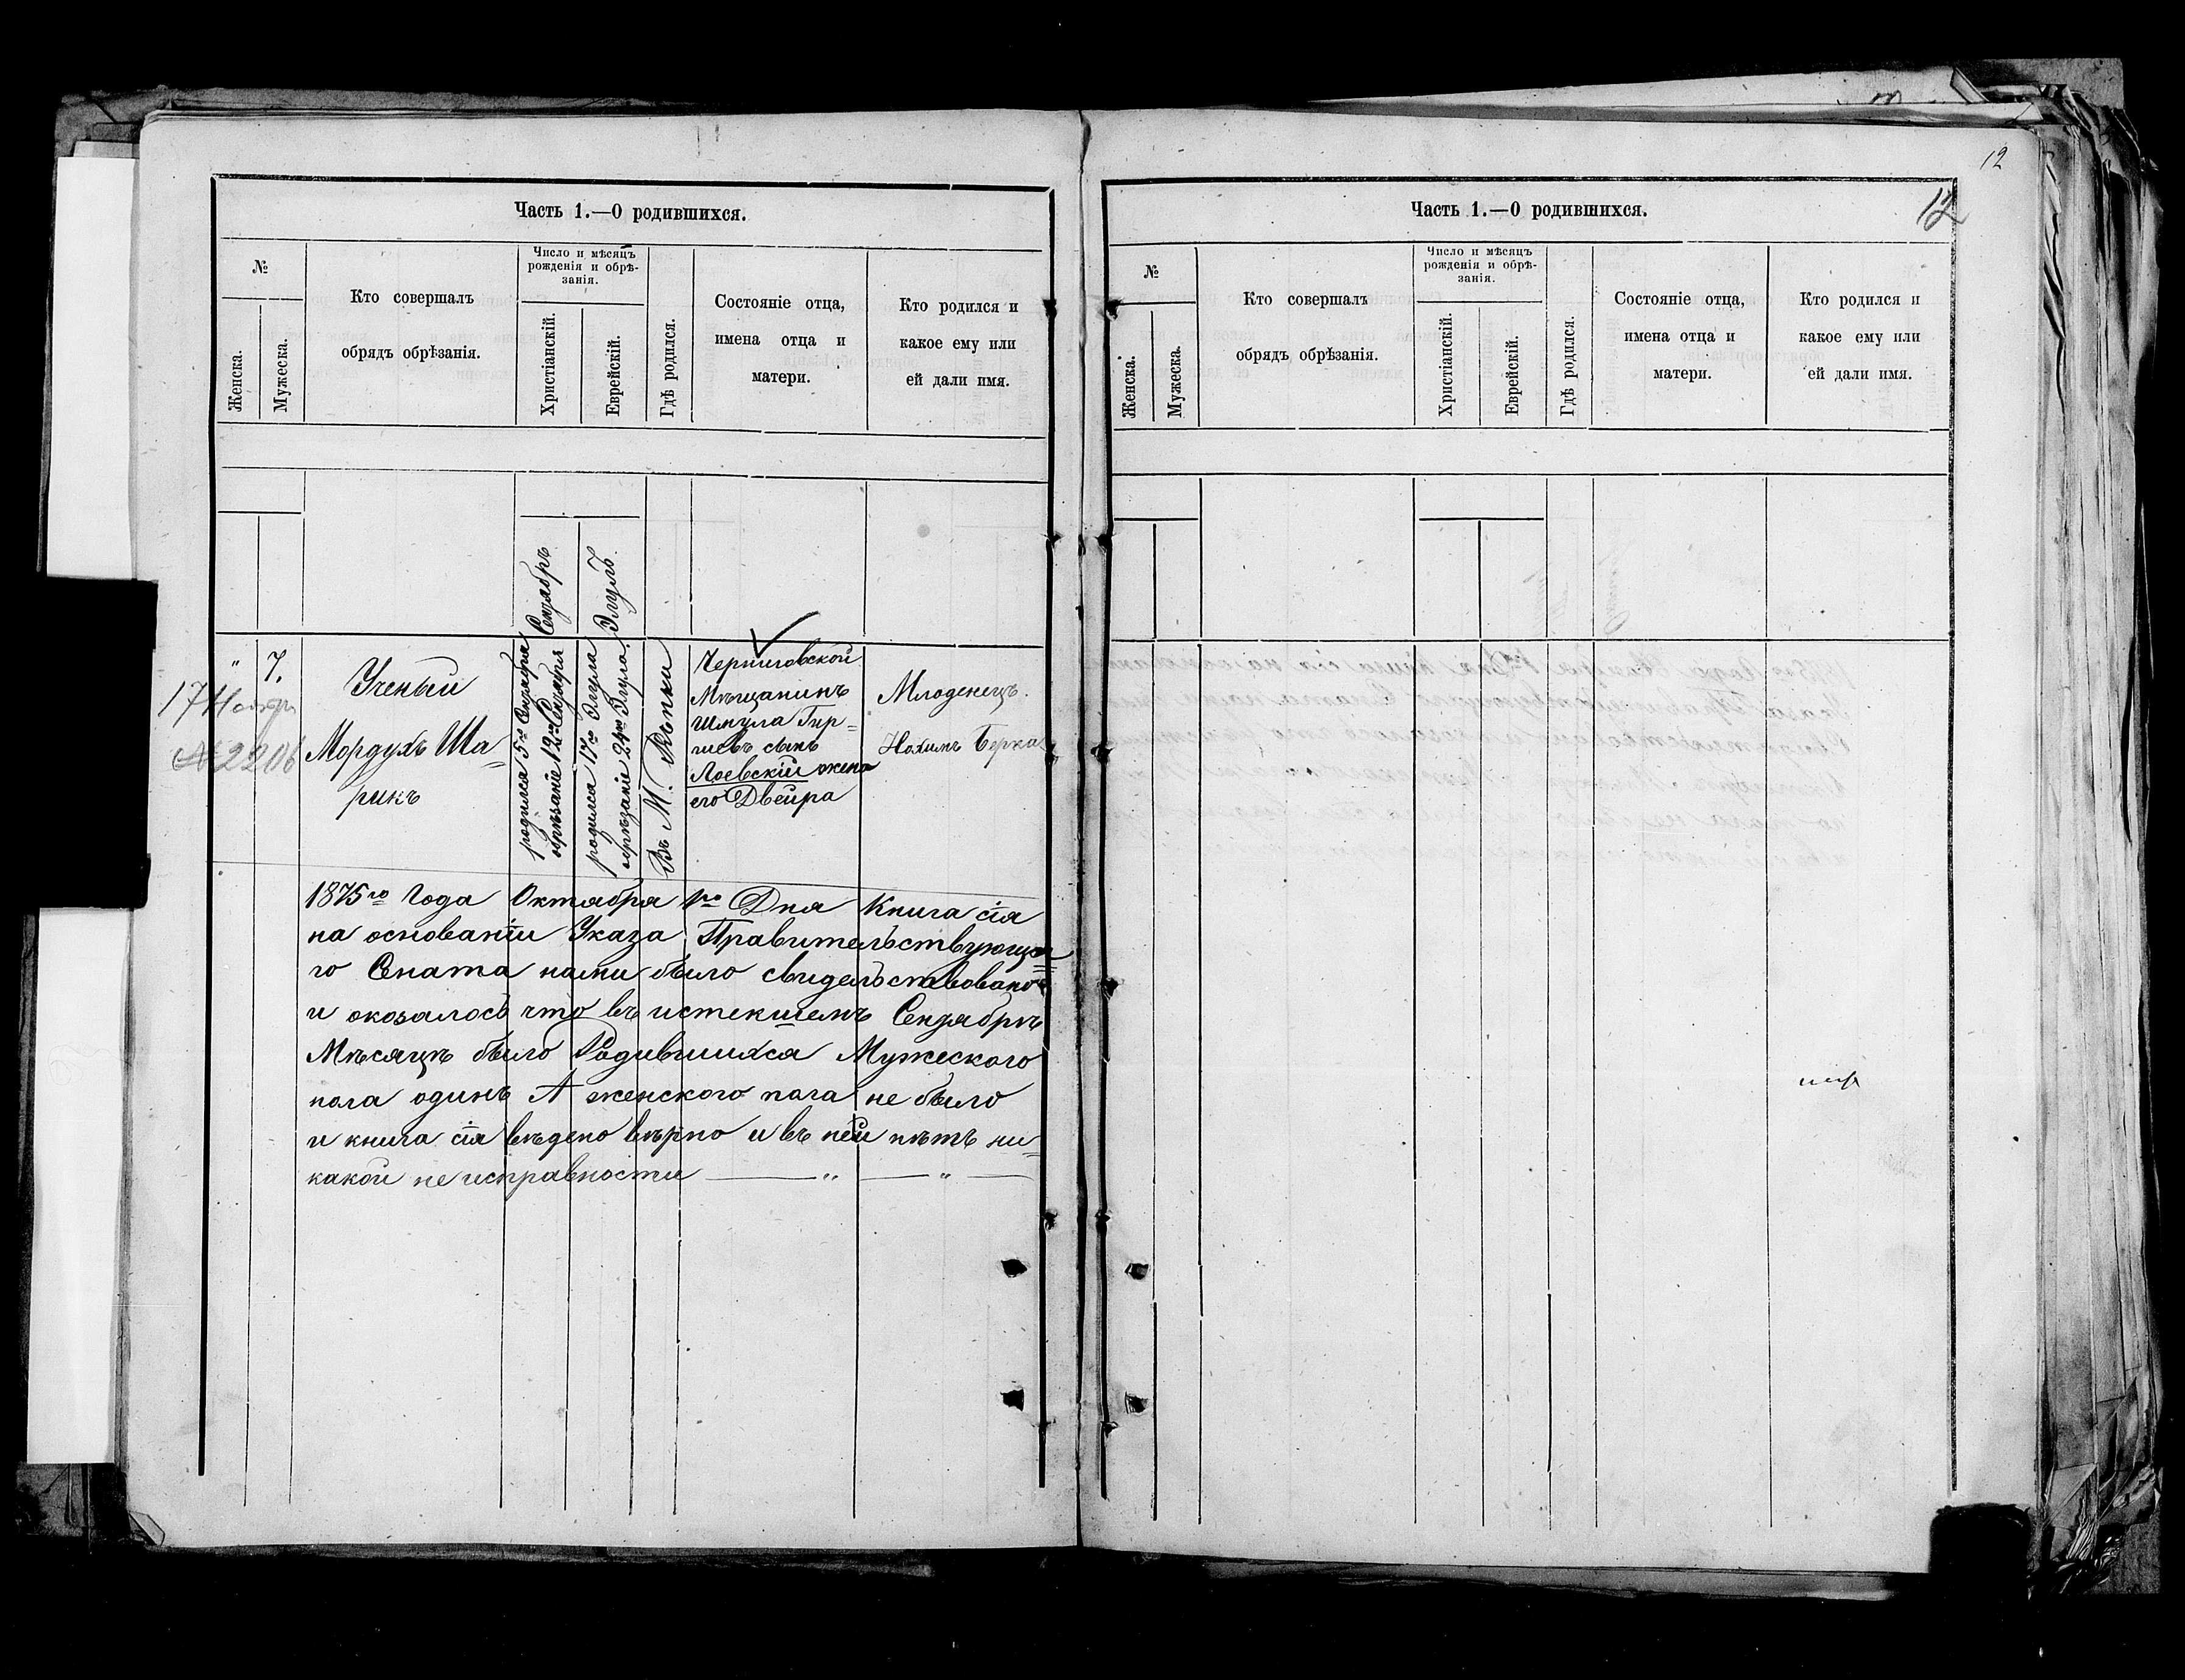 12
Часть 1.—О родившихся.
№
Женска.
Мужеска.
Кто совершалъ
обрядъ обрѣзанія.
Число и мѣсяцъ
рожденія и обрѣ-
занія.
Христіанскій.
Еврейскій.
Гдѣ родился.
Состояніе отца,
имена отца и
матери.
Кто родился и
какое ему или
ей дали имя.
Сентябрь
Элулъ.
"
7.
17 Ноября
№ 2206
Ученый
Мордухъ Ша=
рикъ
родился 5го Сентября
обрѣзаніе 12го Сентября
родился 17го Элула
обрѣзаніе 24го Элула
Въ М. Рѣпки
Черниговской
Мѣщанинъ
Шмула Гир=
шевъ сынъ
Лоевскій жена
его Двейра
Младенецъ.
Нохимъ Берка
1875го Года Октября 1го Дня Книга сія
на основаніи Указа Правительствующа=
го Сената нами было свидельствовано
и оказалось что въ истекшемъ Сентябрѣ
Мѣсяцѣ было Родившихся Мужеского
пола одинъ А женского пола не было
и книга сія вѣдено вѣрно и въ ней нѣтъ ни=
какой не исправности — " — " —
Часть 1.—О родившихся.
12
№
Женска.
Мужеска.
Кто совершалъ
обрядъ обрѣзанія.
Число и мѣсяцъ
рожденія и обрѣ-
занія.
Христіанскій.
Еврейскій.
Гдѣ родился.
Состояніе отца,
имена отца и
матери.
Кто родился и
какое ему или
ей дали имя.